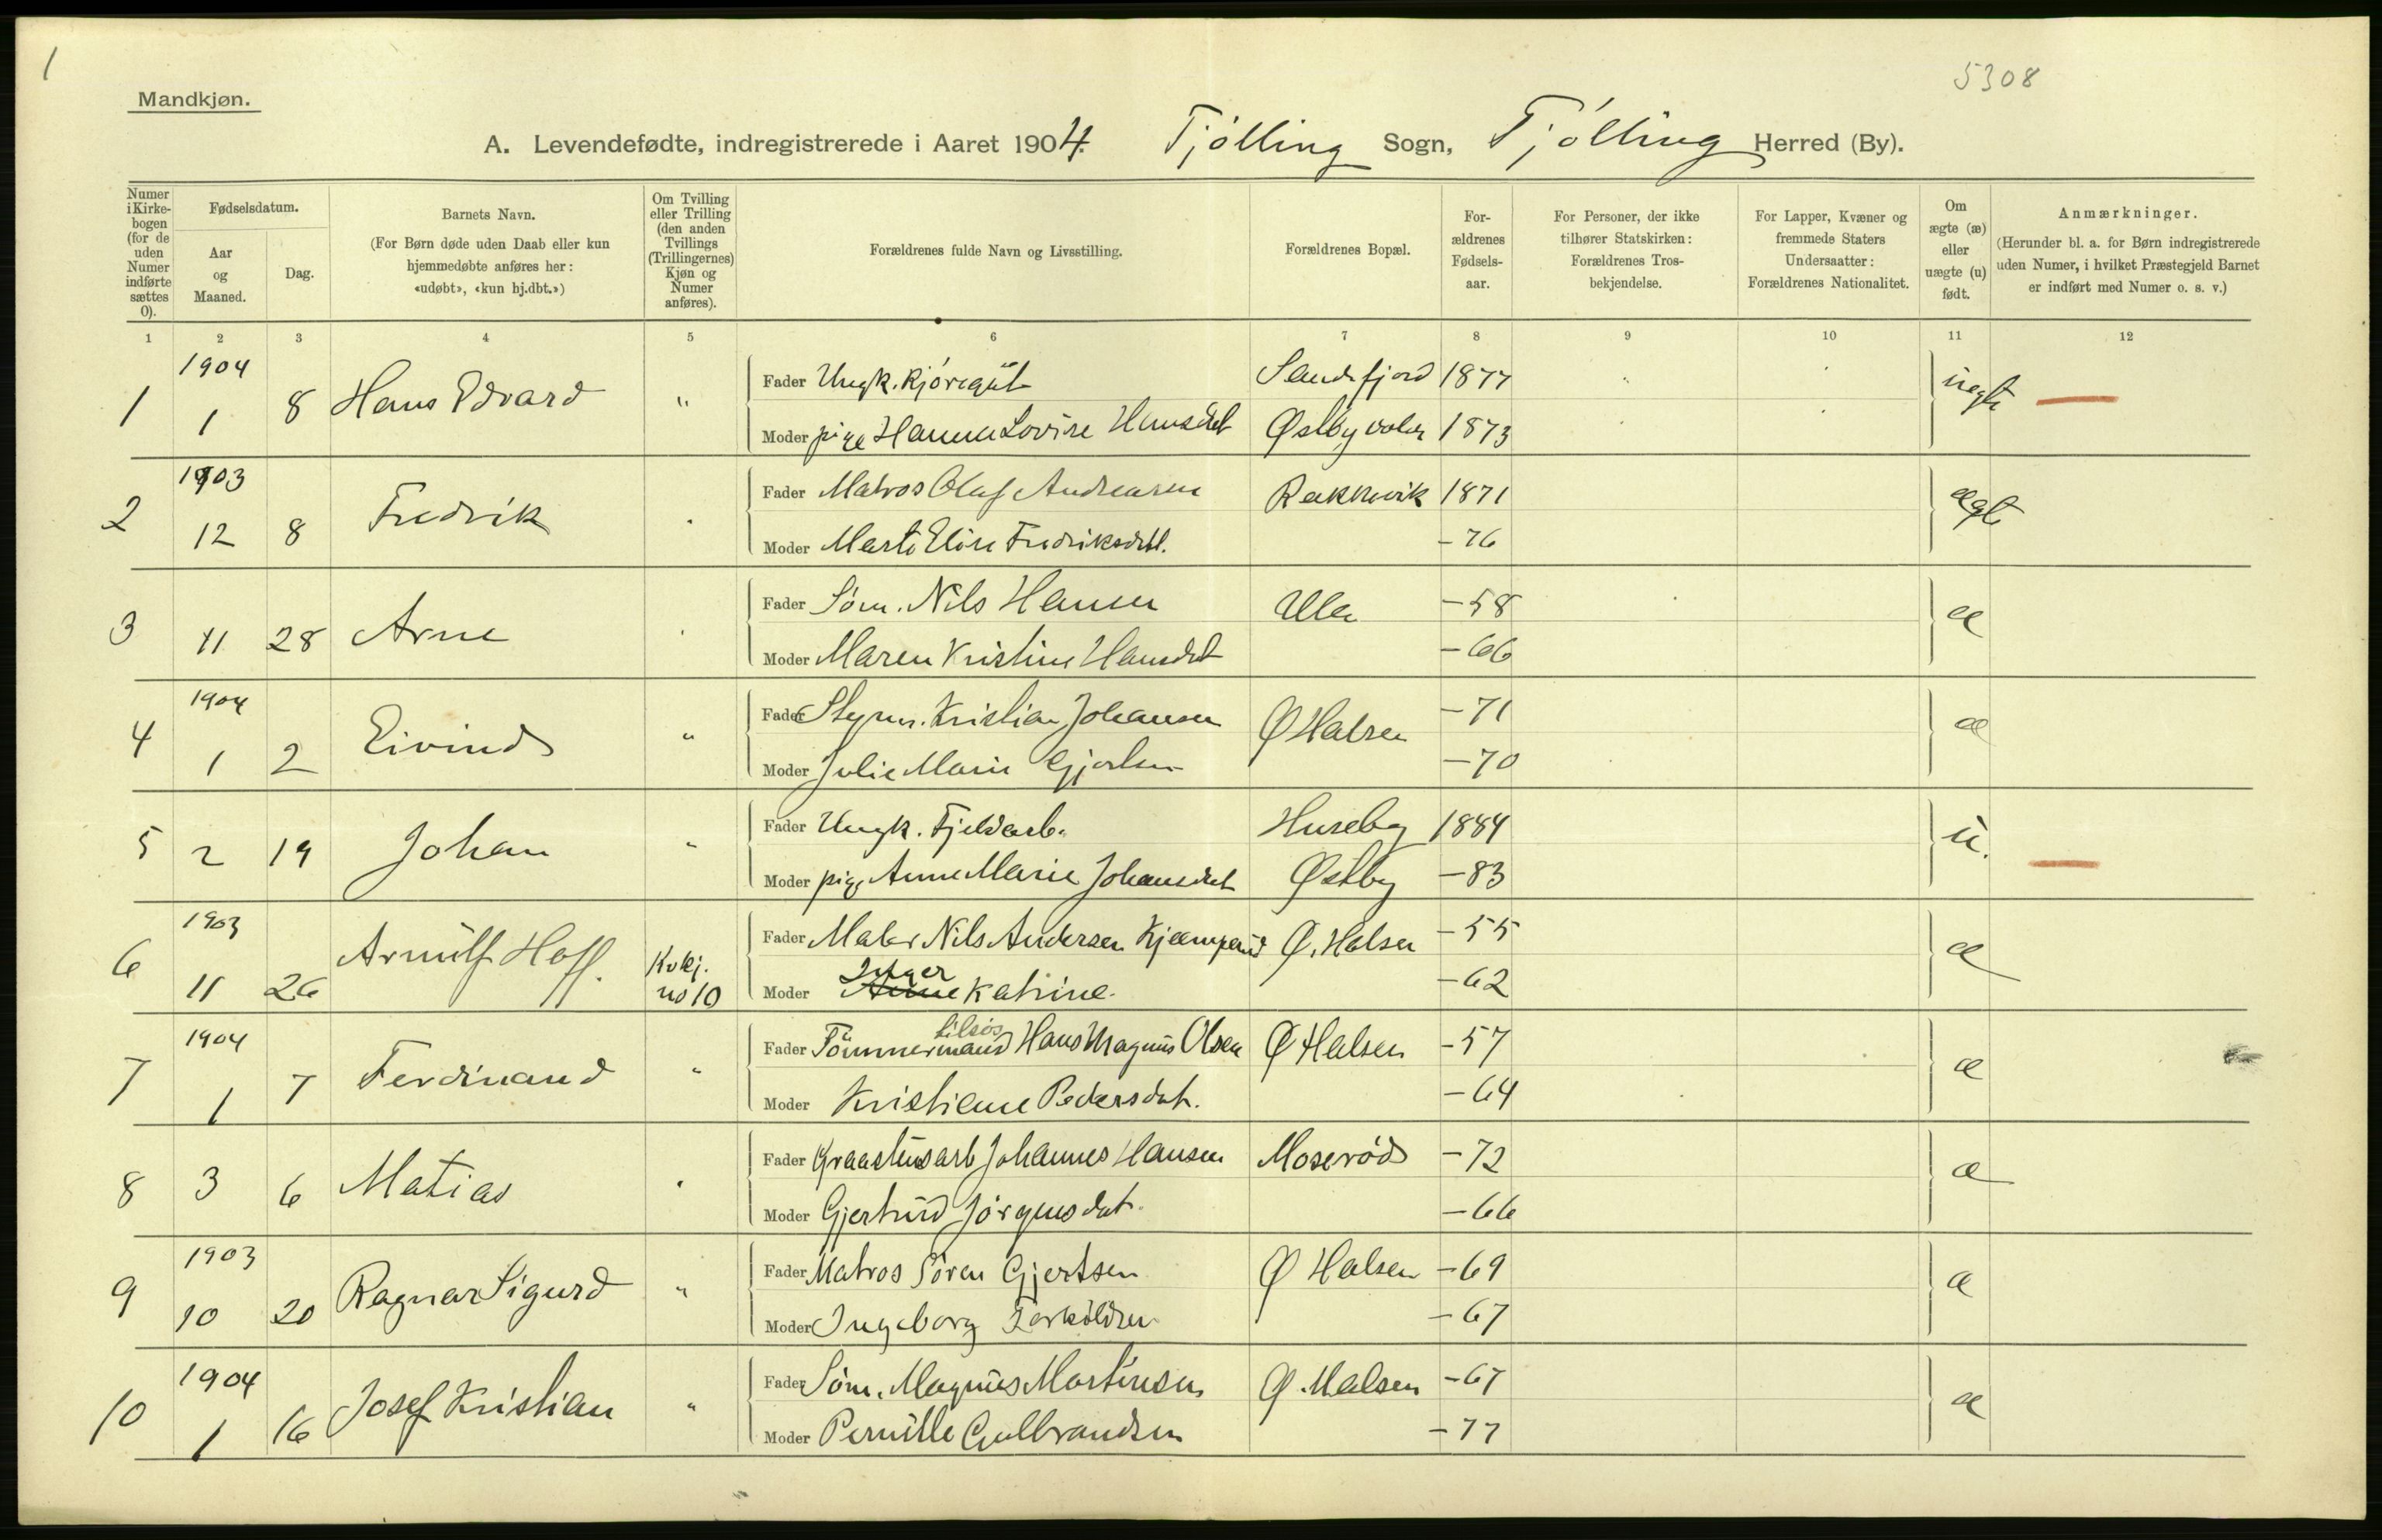 1
5308
Mandkjøn.
A. Levendefødte, indregistrerede i Aaret 1904. Tjølling Sogn, Tjølling Herred (By).
Numer i Kirkebogen (for de uden Numer indførte sættes 0).
Fødselsdatum.
Aar og Maaned.
Dag.
Barnets Navn.
(For Børn døde uden Daab eller kun hjemmedøbte anføres her: «udøbt», «kun hj.dbt.»)
Om Tvilling eller Trilling (den anden Tvillings (Trillingernes) Kjøn og Numer anføres).
Forældrenes fulde Navn og Livsstilling.
Forældrenes Bopæl.
Forældrenes Fødselsaar.
For Personer, der ikke tilhører Statskirken: Forældrenes Trosbekjendelse.
For Lapper, Kvæner og fremmede Staters Undersaatter: Forældrenes Nationalitet.
Om ægte (æ) eller uægte (u) født.
Anmærkninger.
(Herunder bl. a. for Børn indregistrerede uden Numer, i hvilket Præstegjeld Barnet er indført med Numer o. s. v.)
1 2 3 4 5 6 7 8 9 10 11 12
1904
1 1 8 Hans Edvard " Fader Ungk. Kjøregut Sandefjord 1877 uægte
Moder pige Hanna Lovise Hansdat Østby 1873
1903
2 12 8 Fredrik Fader Matros Olaf Andreasen Rekkevik 1871 ægte
Moder Marte Elise Fredriksdtt. - 76
3 11 28 Arne Fader Søm. Nils Hansen Ula - 58 æ
Moder Maren Kristine Hansdat - 66
1904
4 1 2 Eivind " Fader Styrm. Kristian Johansen Ø Halsen - 71 æ
Moder Julie Marie - 70
5 2 19 Johan " Fader Ungk. Fjeldarb. Huseby 1884 u.
Moder pige Anne Marie Johansdat Østby - 83
1903
6 11 26 Arnulf Hoff. Kvkj. no 10 Fader Maler Nils Andersen Kjæmperud Ø. Halsen - 55 æ
Moder Inger Katrine - 62
1904
7 1 7 Ferdinand " Fader Tömmermand Hans Magnus Olsen Ø Halsen - 57 æ
Moder Kristiane Pedersdat. - 64
8 3 6 Matias Fader Graastensarb Johannes Hansen Moserød - 72 æ
Moder Gjertrud Jørgensdat. - 66
1903
9 10 20 Ragnar Sigurd " Fader Matros Søren Gjertsen Ø Halsen - 69 æ
Moder Ingeborg Torkildsen - 67
1904
10 1 16 Josef Kristian " Fader Søm. Magnus Martinsen Ø. Halsen - 67 æ
Moder Pernille Gulbrandsen - 77